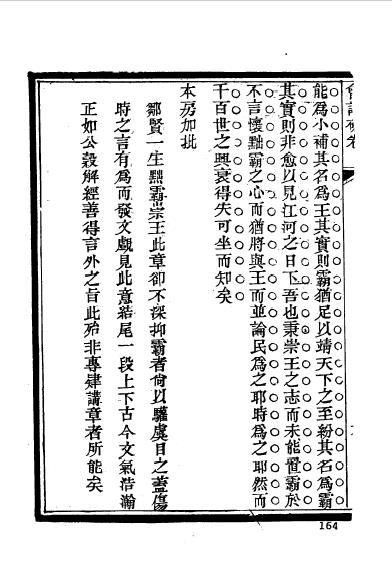 會試硃卷
能爲小補其名爲王其實則霸猶足以靖天下之至紛其名爲霸
其實則非愈以見江河之日下吾也秉崇王之志而未能置霸於
不言懷黜霸之心而猶將與王而並論民爲之耶時爲之耶然而
千百世之興衰得失可坐而知矣
本房加批
鄒賢一生黜霸崇王此章卻不深抑霸者尙以驩虞目之蓋傷
時之言有爲而發文覷見此意結尾一段上下古今文氣浩瀚
正如公穀解經善得言外之旨此殆非專肄講章者所能矣
164